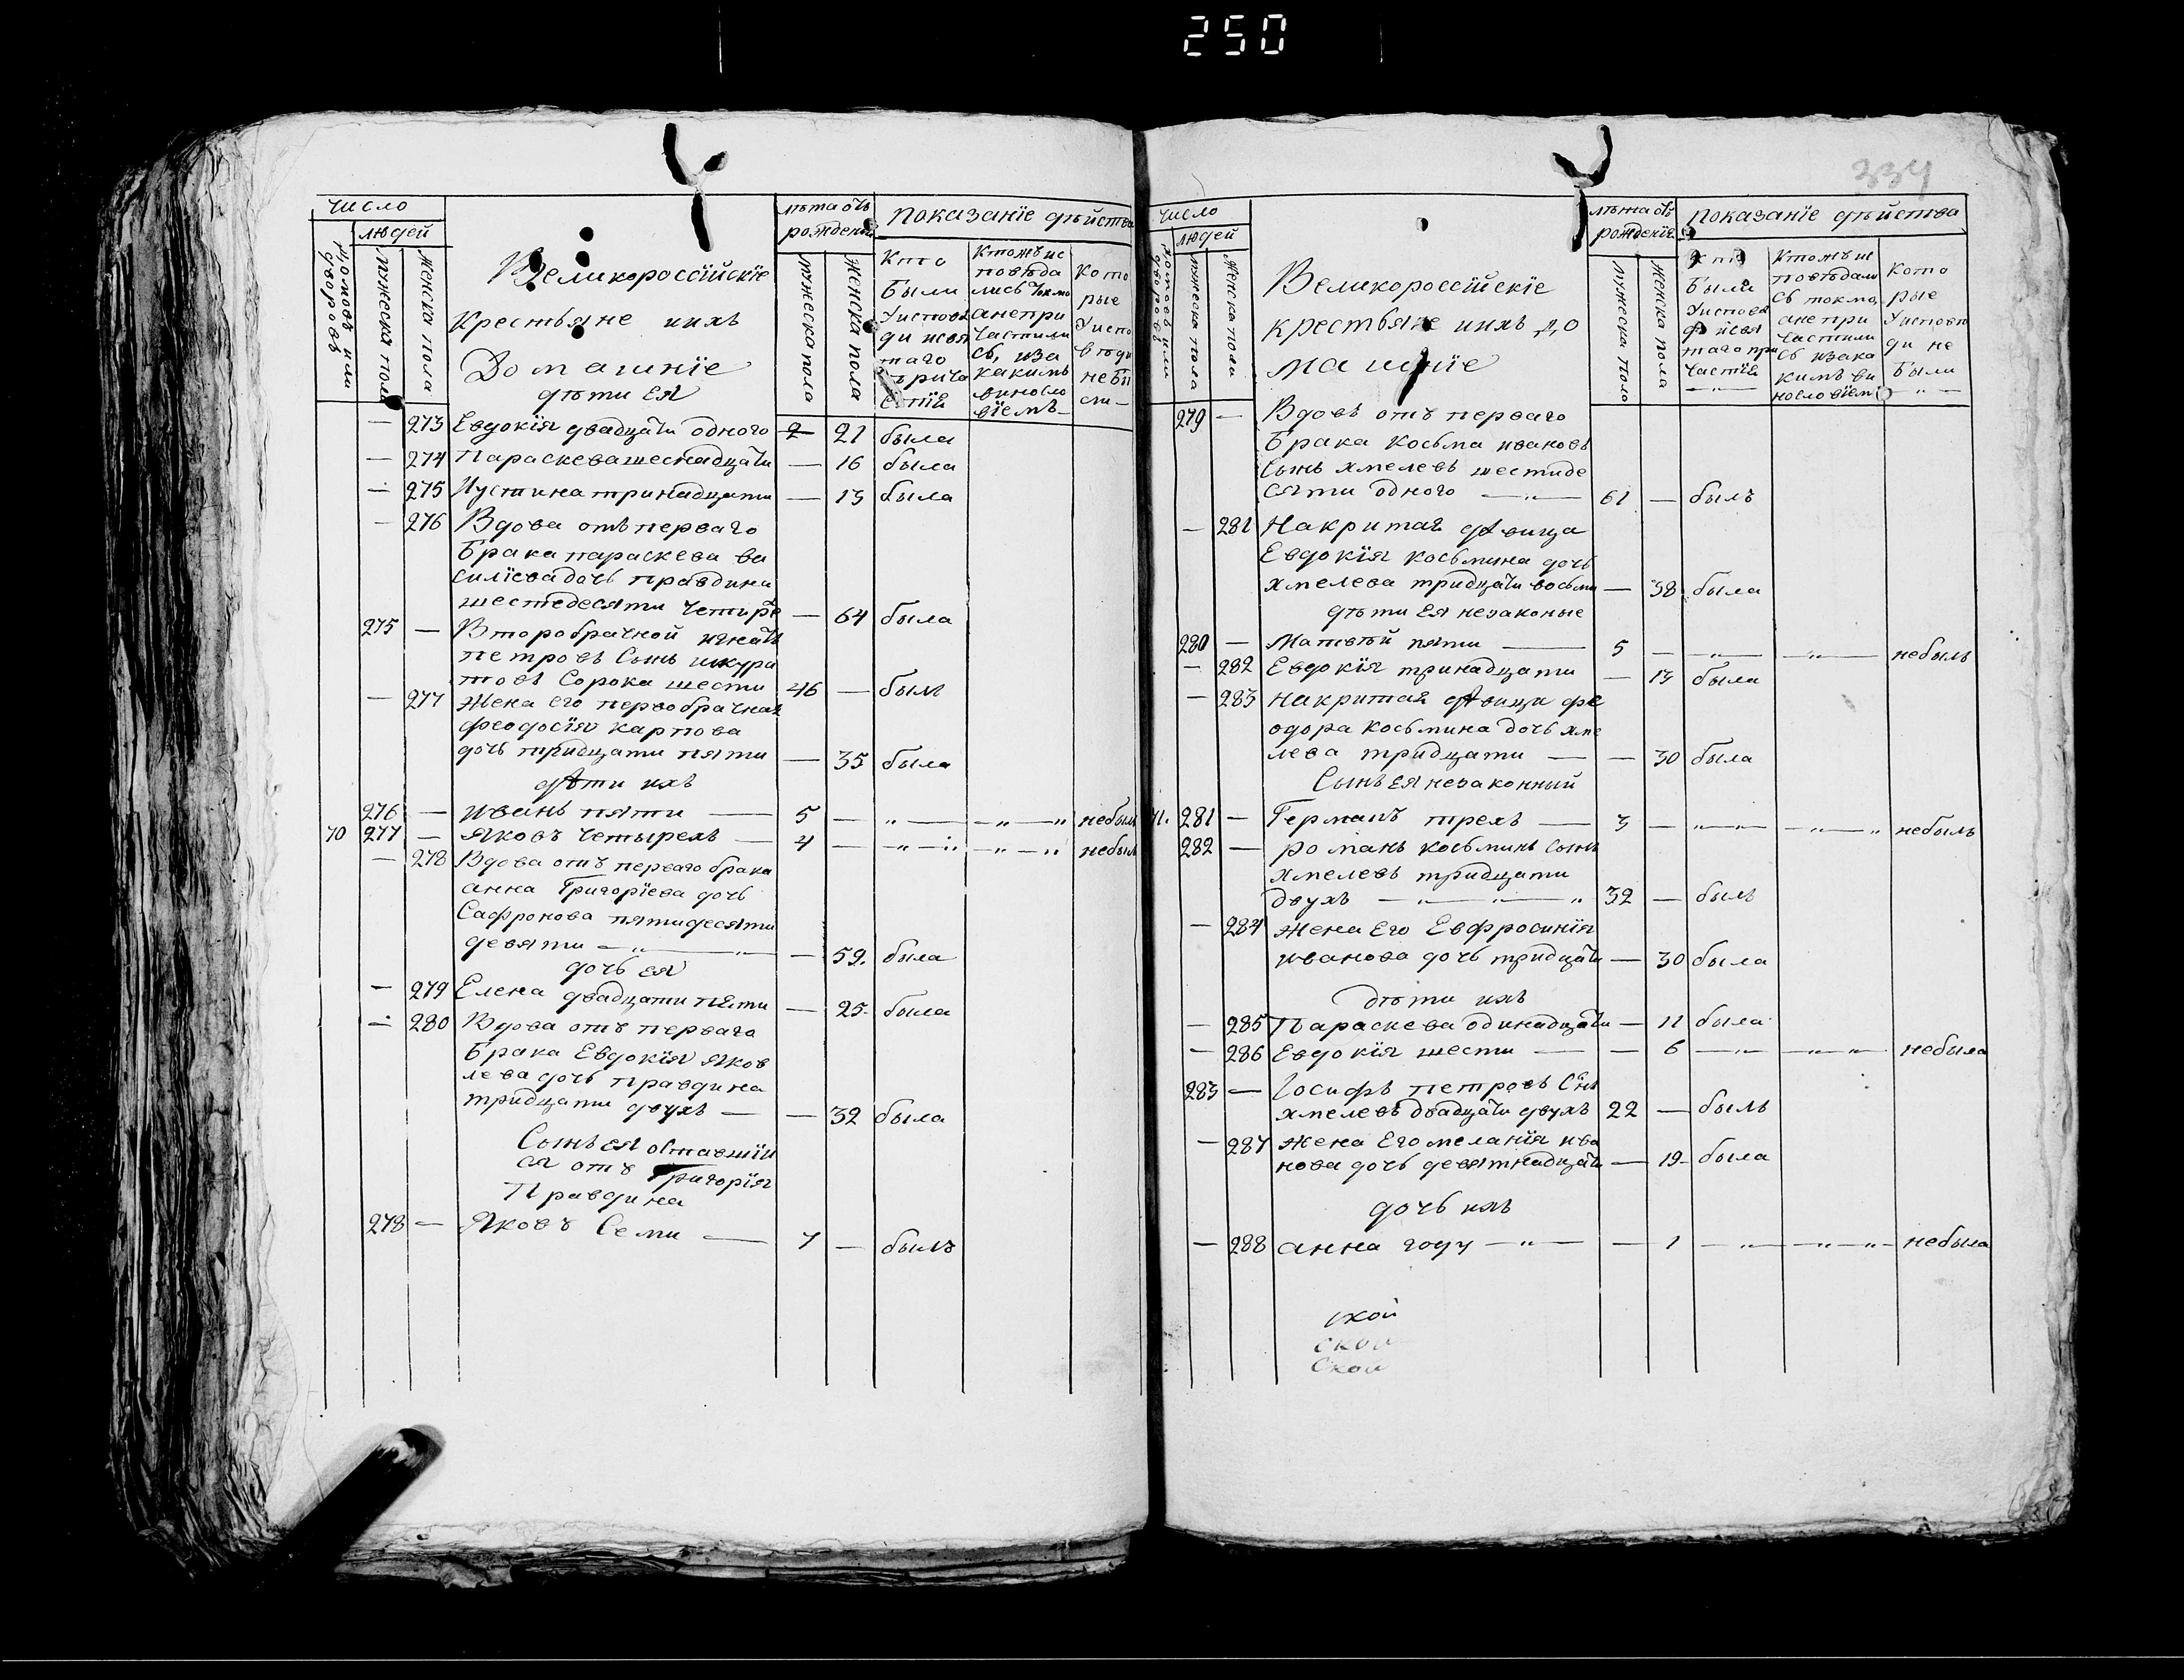 250
число
людей
домовъ или дворовъ
мужеска пола
женска пола
Великороссійскіе
крестьяне ихъ
Домашніе
дѣти ея
лѣта отъ рожденія
мужеска пола
женска пола
показаніе дѣйства
кто
были
у исповѣ
ди и свя
таго
прича
стія
ктожъ ис
повѣда
лись токмо
а не при
частили
сь, и за
какимъ
винословіемъ
кото
рые
у испо
вѣди
не бы
ли
— 273 Евдокія двадцати одного 2 21 была
— 274 Параскева шестнадцати — 16 была
— 275 Иустина тринадцати — 13 была
— 276 Вдова отъ перваго
брака параскева ва
силіева дочь правдина
шестедесяти четыре — 64 была
275 — Второбрачной игнатъ
петровъ сынъ шкура
товъ сорока шести 46 — былъ
— 277 жена его первобрачная
феодосія карпова
дочь тридцати пяти — 35 была
дѣти ихъ
276 — иванъ пяти — 5 — „ — „ — „ небылъ
70 277 — яковъ четырехъ — 4 — „ — „ — „ небылъ
— 278 Вдова отъ перваго брака
анна Григоріева дочь
Сафронова пятидесяти
девяти — „ — „ — — 59. была
дочь ея
— 279 Елена двадцати пяти — 25. была
— 280 Вдова отъ перваго
брака Евдокія яков
лева дочь правдина
тридцати двухъ — — 32 была
Сынъ ея оставшій
ся отъ Григорія
Правдина
278 — Яковъ Семи — 7 — былъ
334
число
людей
домовъ или дворовъ
мужеска пола
женска пола
Великороссійскіе
крестьяне ихъ до
машніе
лѣта отъ рожденія
мужеска пола
женска пола
показаніе дѣйства
кто
были
у исповѣ
ди и свя
таго при
частія
— „ —
ктожъ ис
повѣдали
сь токмо,
а не при
частили
сь и за ка
кимъ ви
нословіемъ
кото
рые
у исповѣ
ди не
были
— „ —
279 — Вдовъ отъ перваго
брака косьма ивановъ
сынъ хмелевъ шестиде
сяти одного — „ — 61 — былъ
— 281 Накритая дѣвица
Евдокія косьмина дочь
хмелева тридцати восьми — 38 была
дѣти ея незаконые
280 — Матвѣй пяти — 5 — „ — „ — небылъ
— 282 Евдокія тринадцати — 13 была
— 283 накритая дѣвица фе
одора косьмина дочь хме
лева тридцати — — 30 была
Сынъ ея незаконный
71. 281 — Германъ трехъ — 3 — „ — „ — „ небылъ
282 — романъ косьминъ сынъ
хмелевъ тридцати
двухъ — „ — „ — „ 32 — былъ
— 284 жена его Евфросинія
иванова дочь тридцати — 30 была
дѣти ихъ
— 285 Параскева одинадцати — 11 была
— 286 Евдокія шести — — 6 — „ — „ — „ — небыла
283 — Іосифъ петровъ Снъ
хмелевъ двадцати двухъ 22 — былъ
— 287 жена его меланія ива
нова дочь девятнадцати — 19- была
дочь ихъ
— 288 анна году — „ — — 1 — „ — „ — „ — небыла
ской
ской
ской